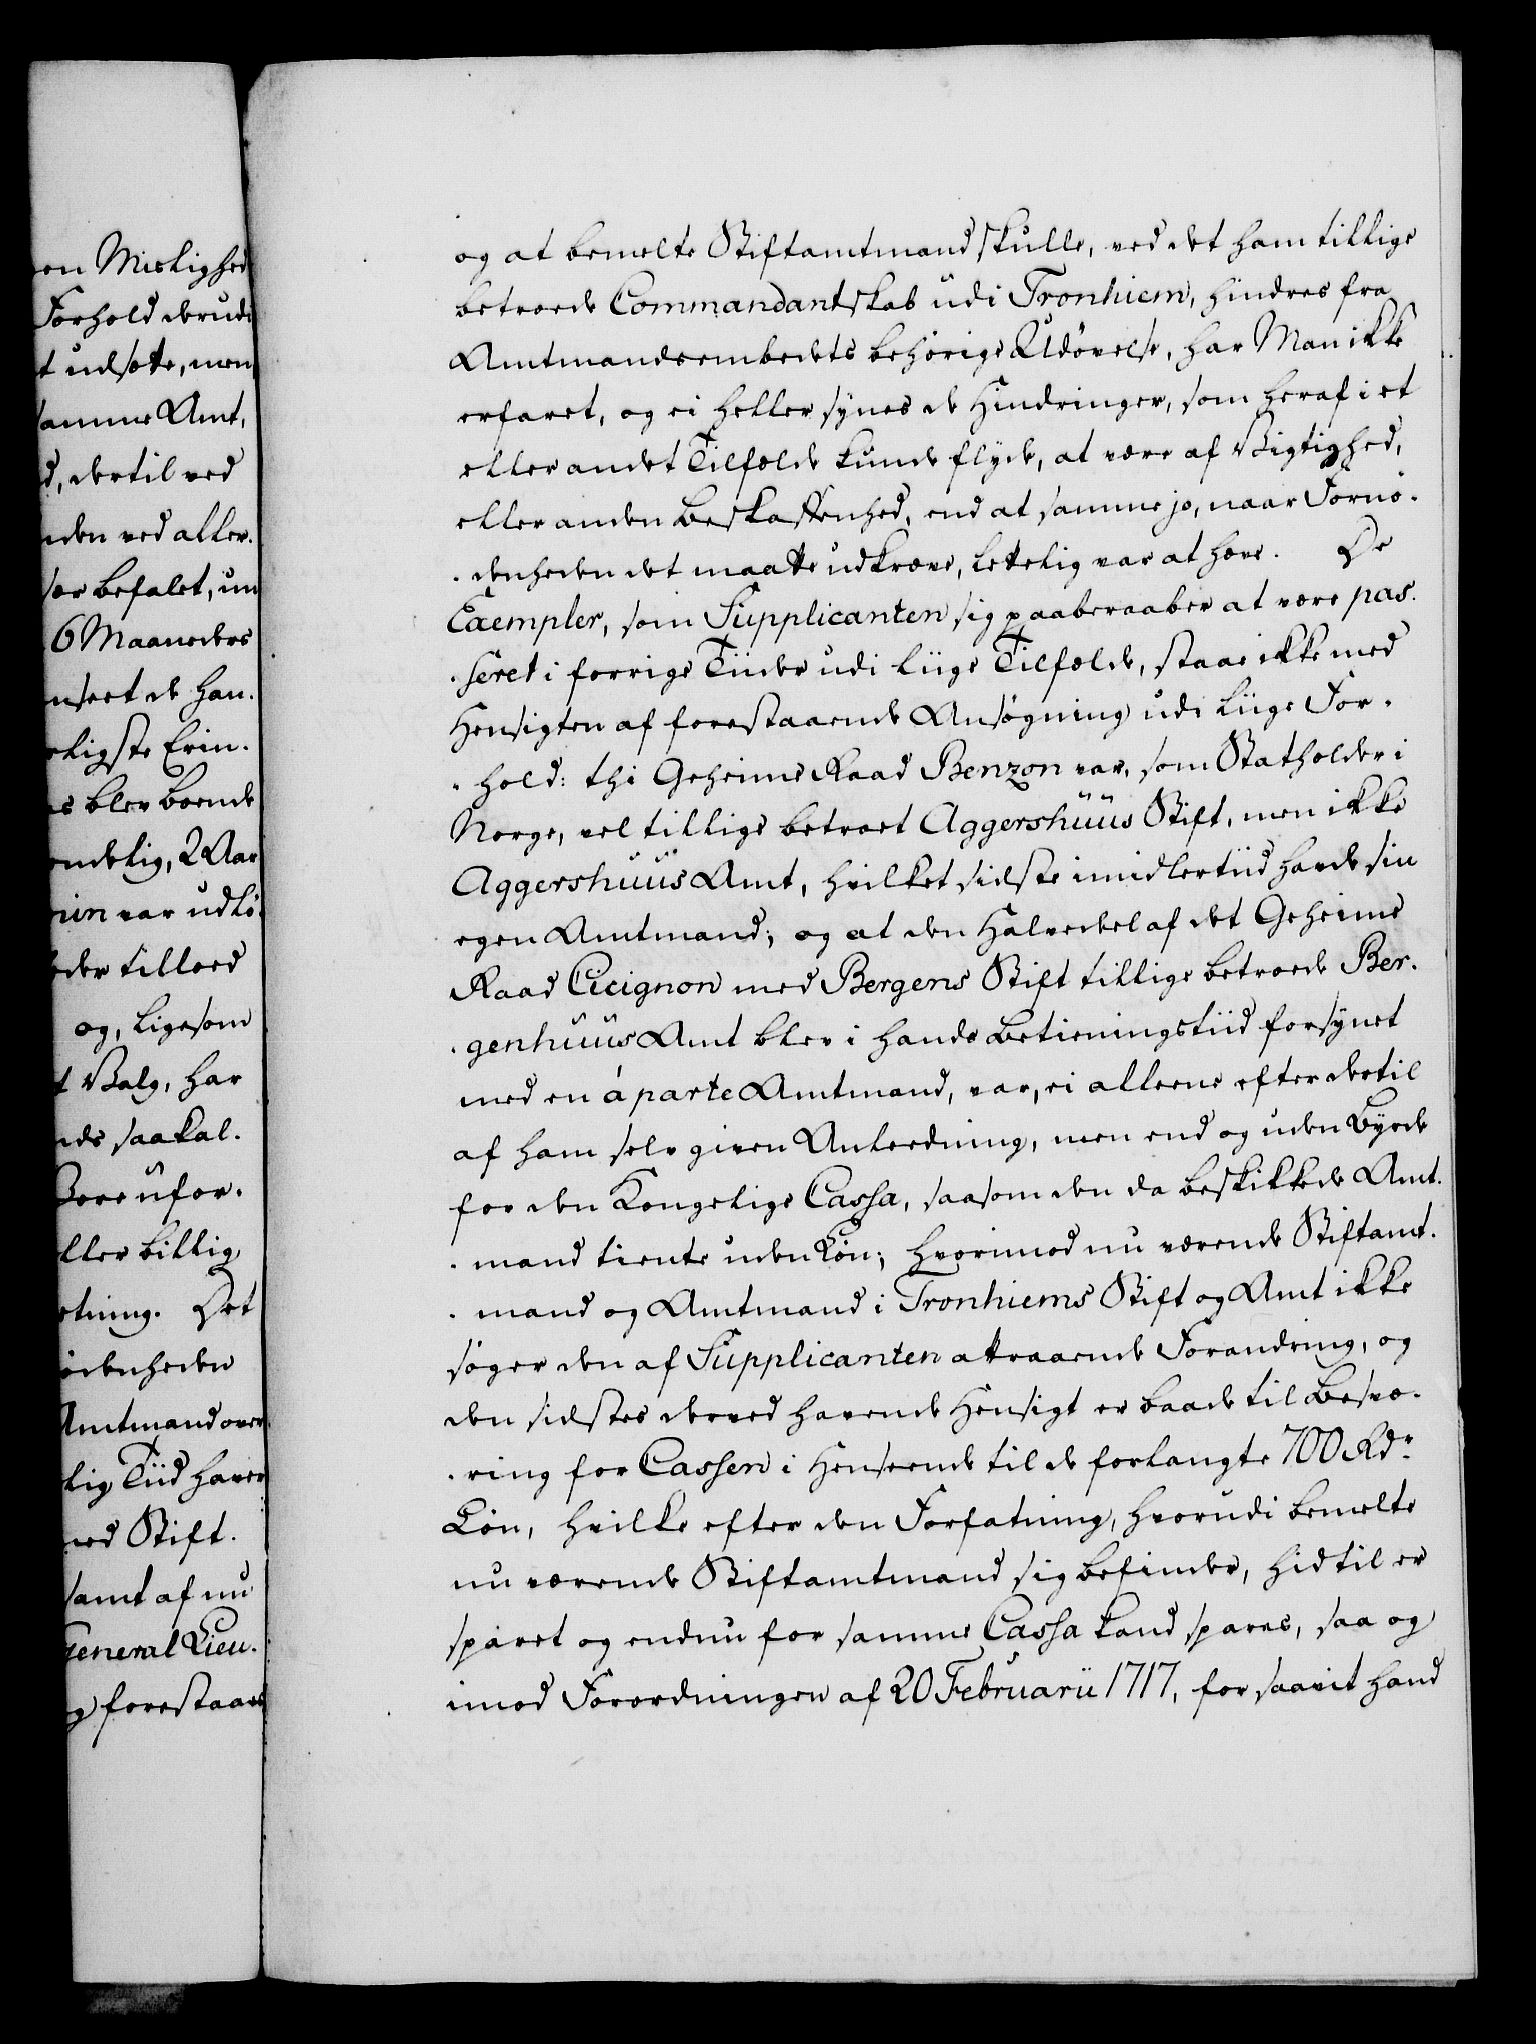 en Mislighed
Forhold derudi
t udsette, men
samme Amt,
d, dertil ved
nden ved aller-
ser befalet, un
6 Maaneders
nseet de han-
rligste Erin-
s blev boende
endelig, 2 Aar
nin var udlö-
eder tilloed
og, ligesom
t Valg, har
nds saakal-
Bere ufor-
ller billig
etning. Det
ödenheden
Amtmand over
lig Tiid haver
med Stift-
samt af nu
General Lieu-
g forestaaes
og at bemelte Stiftamtmand skulle, ved det ham tillige
betroede Commandantskab udi Tronhiem, hindres fra
Amtmandsembedets behörige Udövelse, har Man ikke
erfaret, og ei heller synes de Hindringer, som heraf i et
eller andet Tilfælde kunde flyde, at være af Vigtighed,
eller anden Beskaffenhed, end at samme jo, naar Fornö-
-denheden det maatte udkræve, lettelig var at hæve. De
Exempler, som Supplicanten sig paaberaaber at være pas-
-seret i forrige Tiider udi liige Tilfælde, staae ikke med
Hensigten af forestaaende Ansögning udi liige For-
-hold: thi Geheime Raad Benzon var, som Statholder i
Norge, vel tillige betroet Aggershuus Stift, men ikke
Aggershuus Amt, hvilket sidste imidlertiid havde sin
egen Amtmand; og at den Halvedel af det Geheime
Raad Cicignon med Bergens Stift tillige betroede Ber-
-genhuus Amt blev i hands Betieningstiid forsynet
med en à parte Amtmand, var, ei alleene efter dertil
af ham selv given Anleedning, men end og uden Byrde
for den Kongelige Cassa, saasom den da beskikkede Amt-
-mand tiente uden Lön; hvorimod nu værende Stiftamt-
-mand og Amtmand i Tronhiems Stift og Amt ikke
söger den af Supplicanten attraaende Forandring, og
den sidstes derved havende Hensigt er baade til Besvæ-
-ring for Cassen i Henseende til de forlangte 700 Rdr
Lön, hvilke efter den Forfatning, hvorudi bemelte
nu værende Stiftamtmand sig befinder, hidtil er
sparet og endnu for samme Cassa kand spares, saa og
imod Forordningen af 20 Februarii 1717, for saavit hand